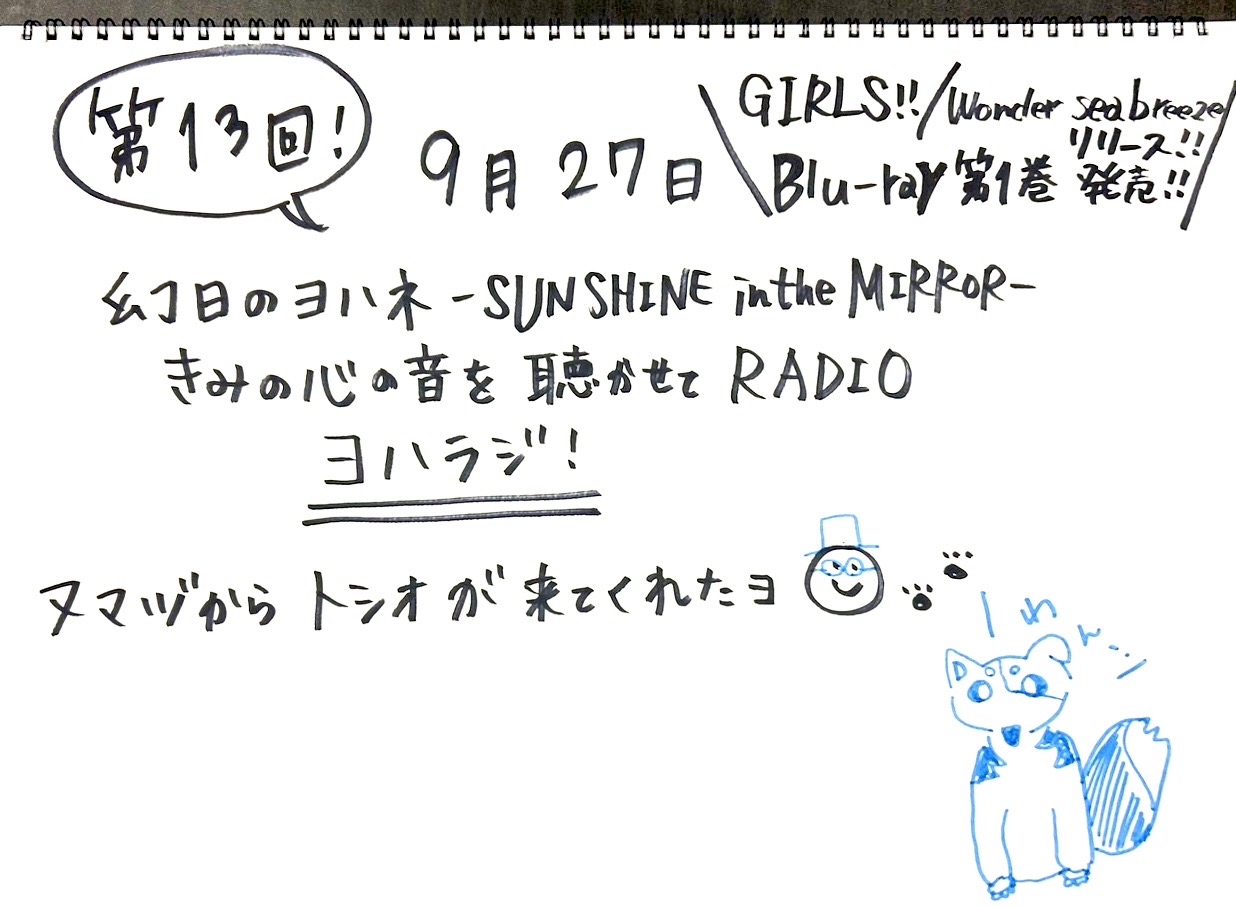 第13回!
9月27日
GIRLS!!/Wonder sea breeze
リリース!!
Blu-ray 第1巻 発売!!
幻日のヨハネ -SUNSHINE in the MIRROR-
きみの心の音を聴かせて RADIO
ヨハラジ!
ヌマヅからトシオが来てくれたヨ